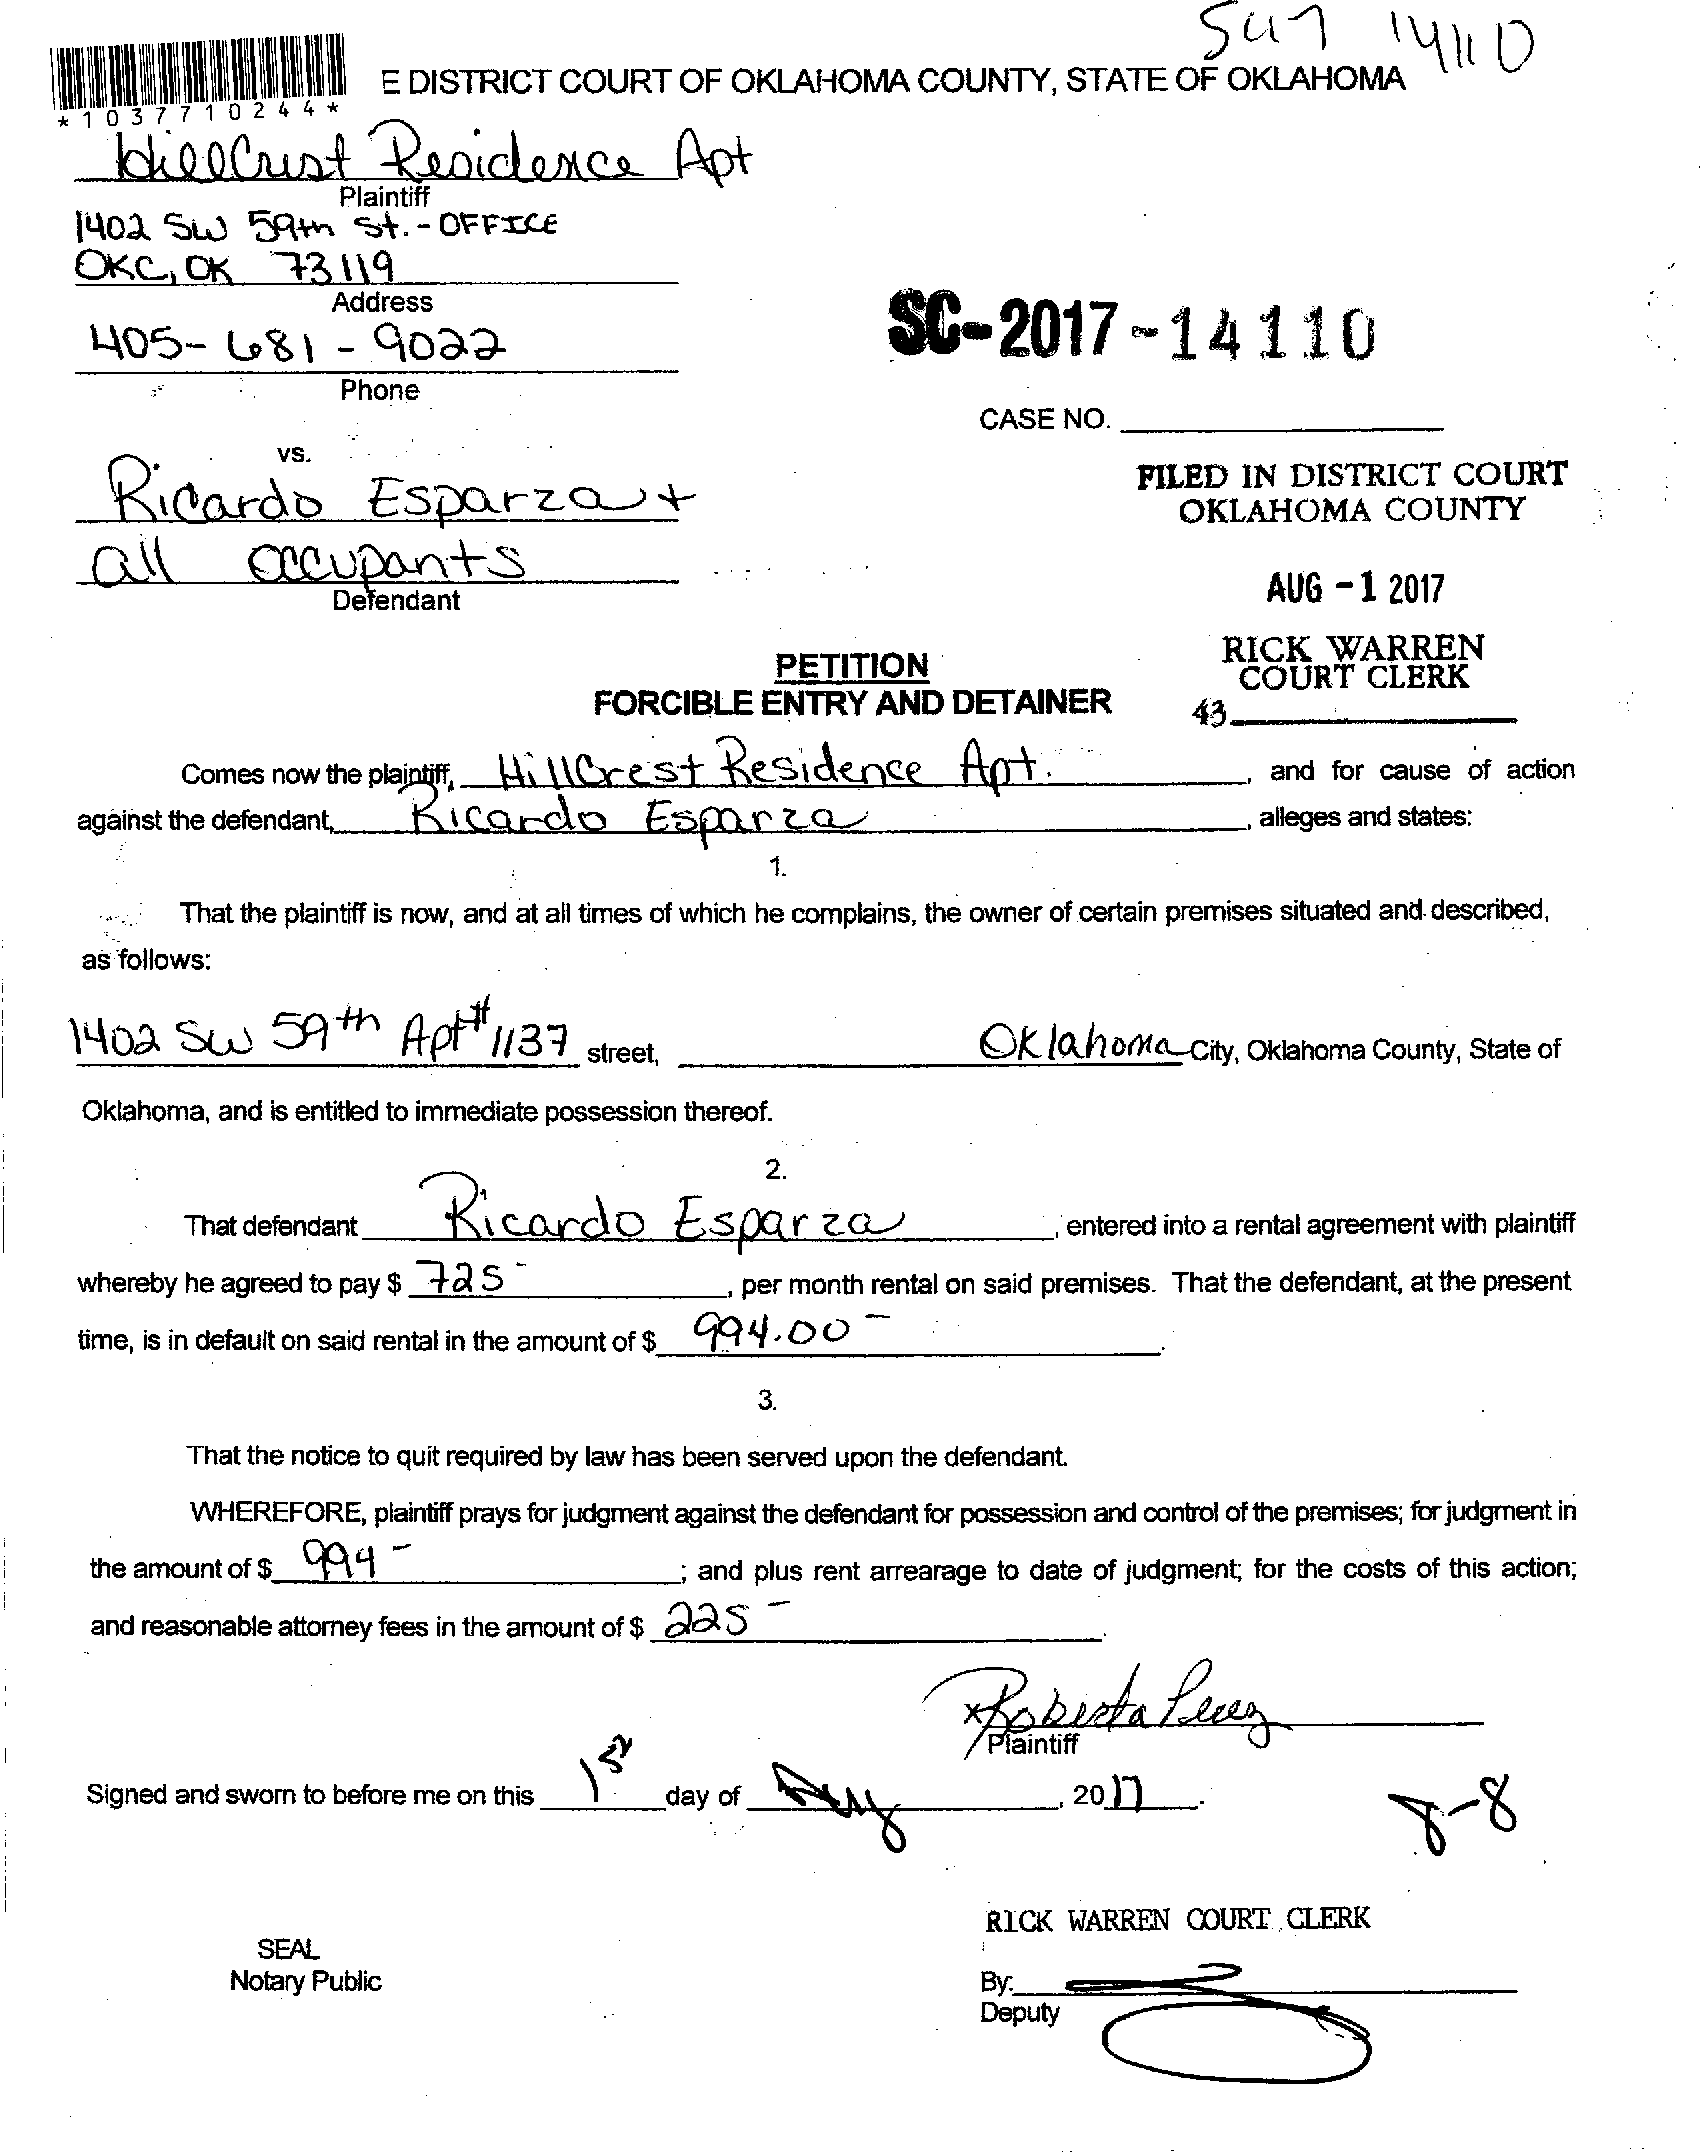 SC17 14110
E DISTRICT COURT OF OKLAHOMA COUNTY, STATE OF OKLAHOMA
*1037710244*
HillCrest Residence Apt
Plaintiff
1402 SW 59th St. - OFFICE
OKC, OK 73119
Address
405-681-9022
Phone
SC-2017-14110
CASE NO.
vs.
Ricardo Esparza +
all occupants
Defendant
FILED IN DISTRICT COURT
OKLAHOMA COUNTY
AUG -1 2017
RICK WARREN
COURT CLERK
43
PETITION
FORCIBLE ENTRY AND DETAINER
Comes now the plaintiff, HillCrest Residence Apt. , and for cause of action
against the defendant, Ricardo Esparza , alleges and states:
1.
That the plaintiff is now, and at all times of which he complains, the owner of certain premises situated and described,
as follows:
1402 SW 59th Apt# 1137 street, Oklahoma City, Oklahoma County, State of
Oklahoma, and is entitled to immediate possession thereof.
2.
That defendant Ricardo Esparza , entered into a rental agreement with plaintiff
whereby he agreed to pay $ 725- , per month rental on said premises. That the defendant, at the present
time, is in default on said rental in the amount of $ 994.00- .
3.
That the notice to quit required by law has been served upon the defendant.
WHEREFORE, plaintiff prays for judgment against the defendant for possession and control of the premises; for judgment in
the amount of $ 994- ; and plus rent arrearage to date of judgment; for the costs of this action;
and reasonable attorney fees in the amount of $ 225- .
x Roberta Perez
Plaintiff
Signed and sworn to before me on this 1st day of Aug , 2017 .
8-8
RICK WARREN COURT CLERK
SEAL
Notary Public
By:
Deputy